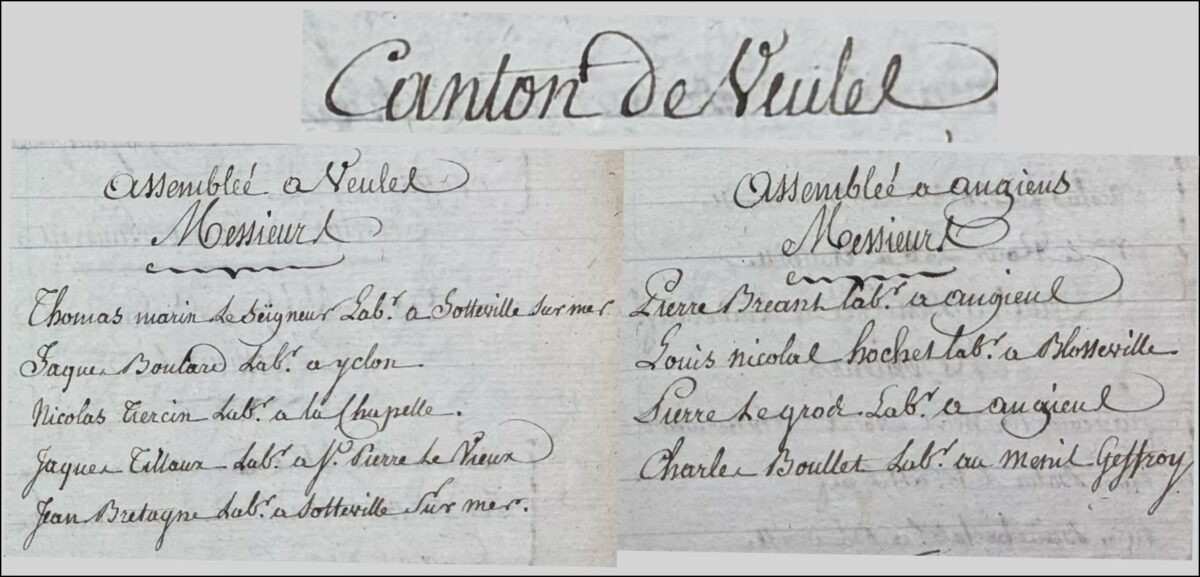 Canton de Veules
assembleé a Veules
Messieurs
Thomas marin Le Seigneur Lab.r a Sotteville sur mer
Jaques Boulard Lab.r a yclon.
Nicolas Tiercin Lab.r a la Chapelle.
Jaques Tillaux Lab.r a St Pierre le Vieux
Jean Bretagne Lab.r a Sotteville Sur mer.
assembleé a angiens
Messieurs
Pierre Breant lab.r a angiens
Louis nicolas hochet lab.r a Blosseville
Pierre Legros Lab.r a angiens
Charles Boullet Lab.r au menil Geffroy